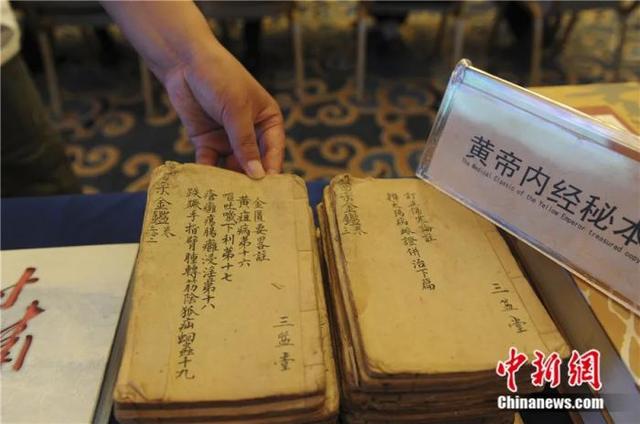 金匱要畧註
黃疸病第十六
嘔吐噦下利第十七
瘡癰腸癰浸淫第十八
趺蹶手指臂腫轉筋陰狐疝蛔蟲十九
三益堂
宗金鑑
訂正傷寒論註
辨太陽病脉證併治下篇
三益堂
宗金鑑
黄帝内经秘本
The Medical Classic of the Yellow Emperor treasured copy
中新网
Chinanews.com